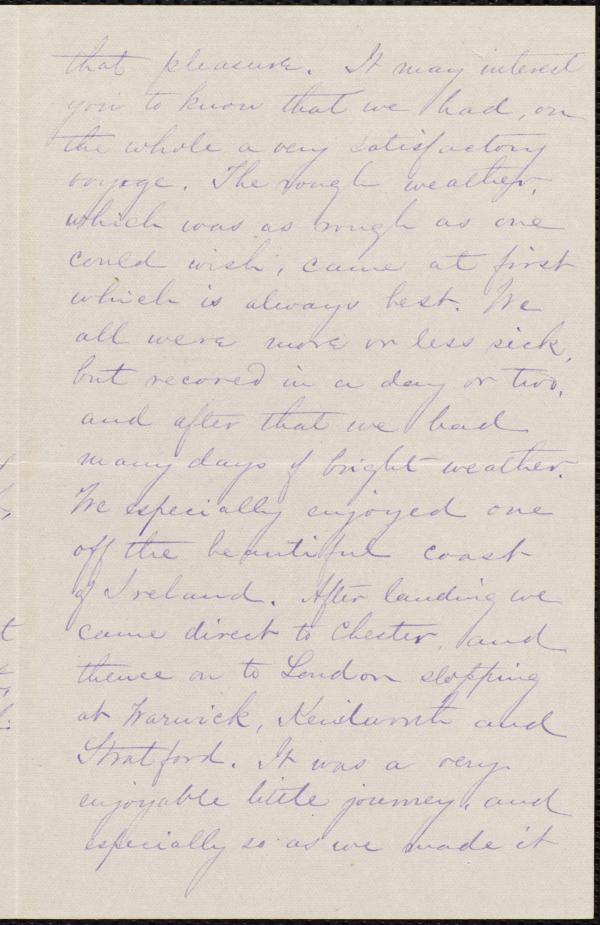 that pleasure. It may interest
you to know that we had, on
the whole a very satisfactory
voyage. The rough weather,
which was as rough as one
could wish, came at first
which is always best. We
all were more or less sick,
but recored in a day or two,
and after that we had
many days of bright weather.
We especially enjoyed one
off the beautiful coast
of Ireland. After landing we
came direct to Chester, and
thence on to London stopping
at Warwick, Kenilworth and
Stratford. It was a very
enjoyable little journey, and
especially so as we made it